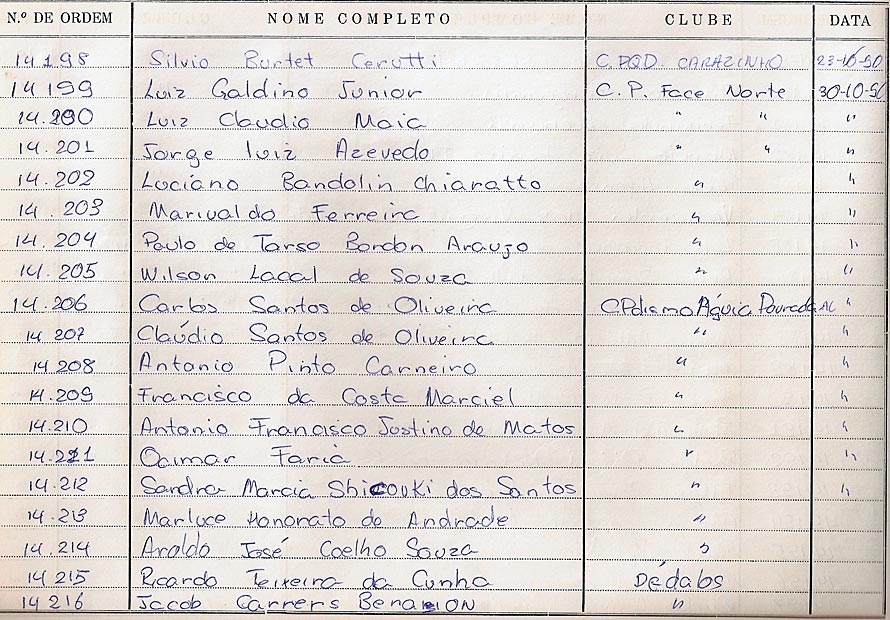 N.º DE ORDEM NOME COMPLETO CLUBE DATA
14198 Silvio Burtet Cerutti C.PQD. CARAZINHO 23-10-90
14199 Luiz Galdino Junior C. P. Face Norte 30-10-90
14.200 Luiz Claudio Maia " " "
14.201 Jorge Luiz Azevedo " " "
14.202 Luciano Bandolin Chiaratto " "
14.203 Marivaldo Ferreira " "
14.204 Paulo de Tarso Bordon Araujo " "
14.205 Wilson Lacal de Souza " "
14.206 Carlos Santos de Oliveira C.Pdismo Águia Dourada AC "
14 207 Claúdio Santos de Oliveira " "
14 208 Antonio Pinto Carneiro " "
14.209 Francisco da Costa Marciel " "
14.210 Antonio Francisco Justino de Matos " "
14.211 Osimar Faria " "
14.212 Sandra Marcia Shicouki dos Santos " "
14.213 Marluce Honorato de Andrade "
14.214 Araldo José Coelho Souza "
14.215 Ricardo Teixeira da Cunha Dédalos
14 216 Jacob Carrers Benarion "